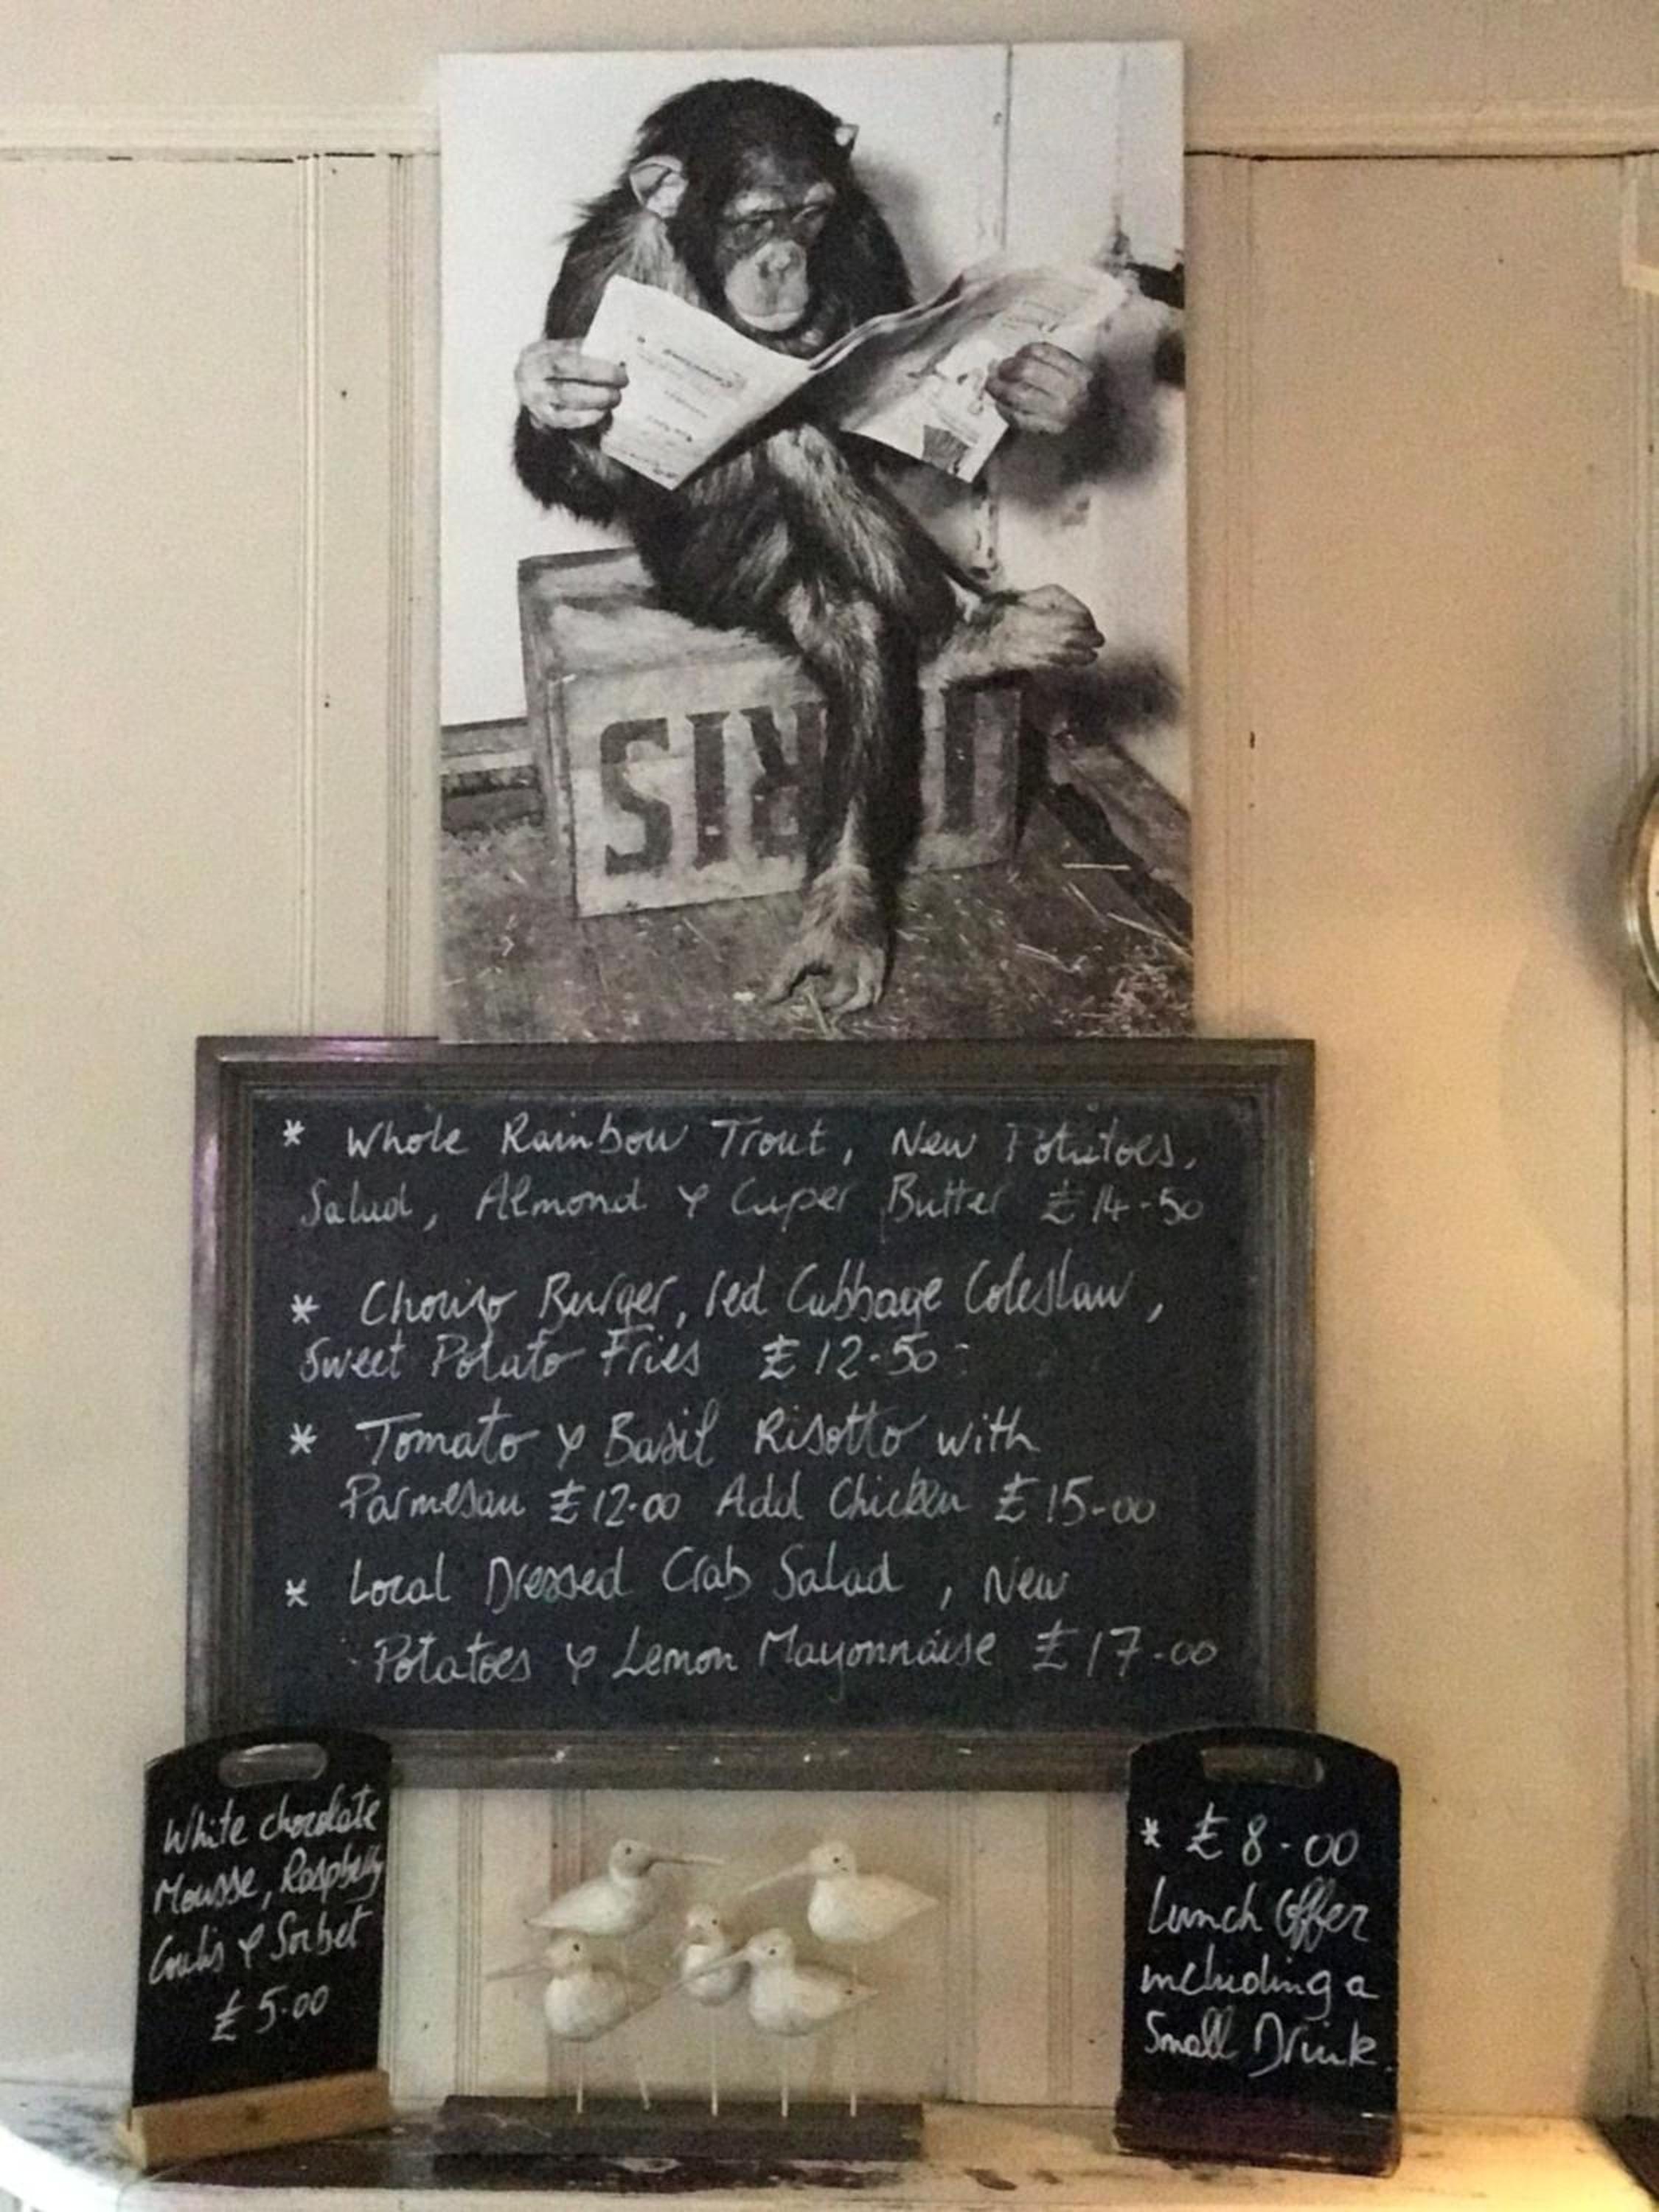 SIRU
* Whole Rainbow Trout, New Potatoes,
Salad, Almond & Caper Butter £14-50
* Chorizo Burger, red Cabbage Coleslaw,
Sweet Potato Fries £12-50
* Tomato & Basil Risotto with
Parmesan £12-00 Add Chicken £15-00
* Local Dressed Crab Salad, New
Potatoes & Lemon Mayonnaise £17-00
White chocolate
Mousse, Raspberry
Coulis & Sorbet
£5-00
* £8-00
Lunch Offer
including a
Small Drink.